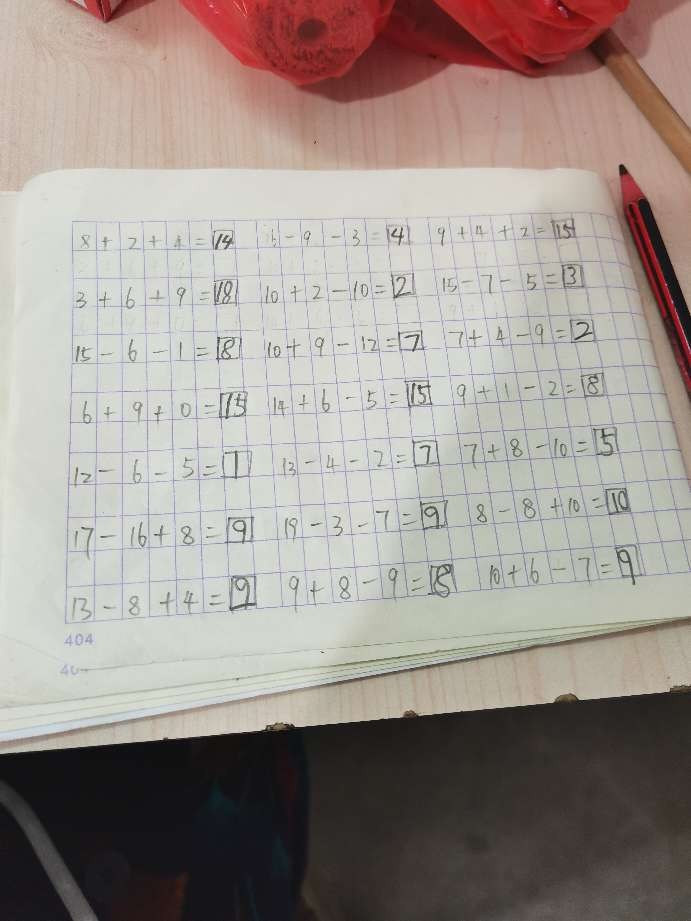 8 + 2 + 4 = 14 16 - 9 - 3 = 4 9 + 4 + 2 = 15
3 + 6 + 9 = 18 10 + 2 - 10 = 2 15 - 7 - 5 = 3
15 - 6 - 1 = 8 10 + 9 - 12 = 7 7 + 4 - 9 = 2
6 + 9 + 0 = 15 14 + 6 - 5 = 15 9 + 1 - 2 = 8
12 - 6 - 5 = 1 13 - 4 - 2 = 7 7 + 8 - 10 = 5
17 - 16 + 8 = 9 19 - 3 - 7 = 9 8 - 8 + 10 = 10
13 - 8 + 4 = 9 9 + 8 - 9 = 8 10 + 6 - 7 = 9
404